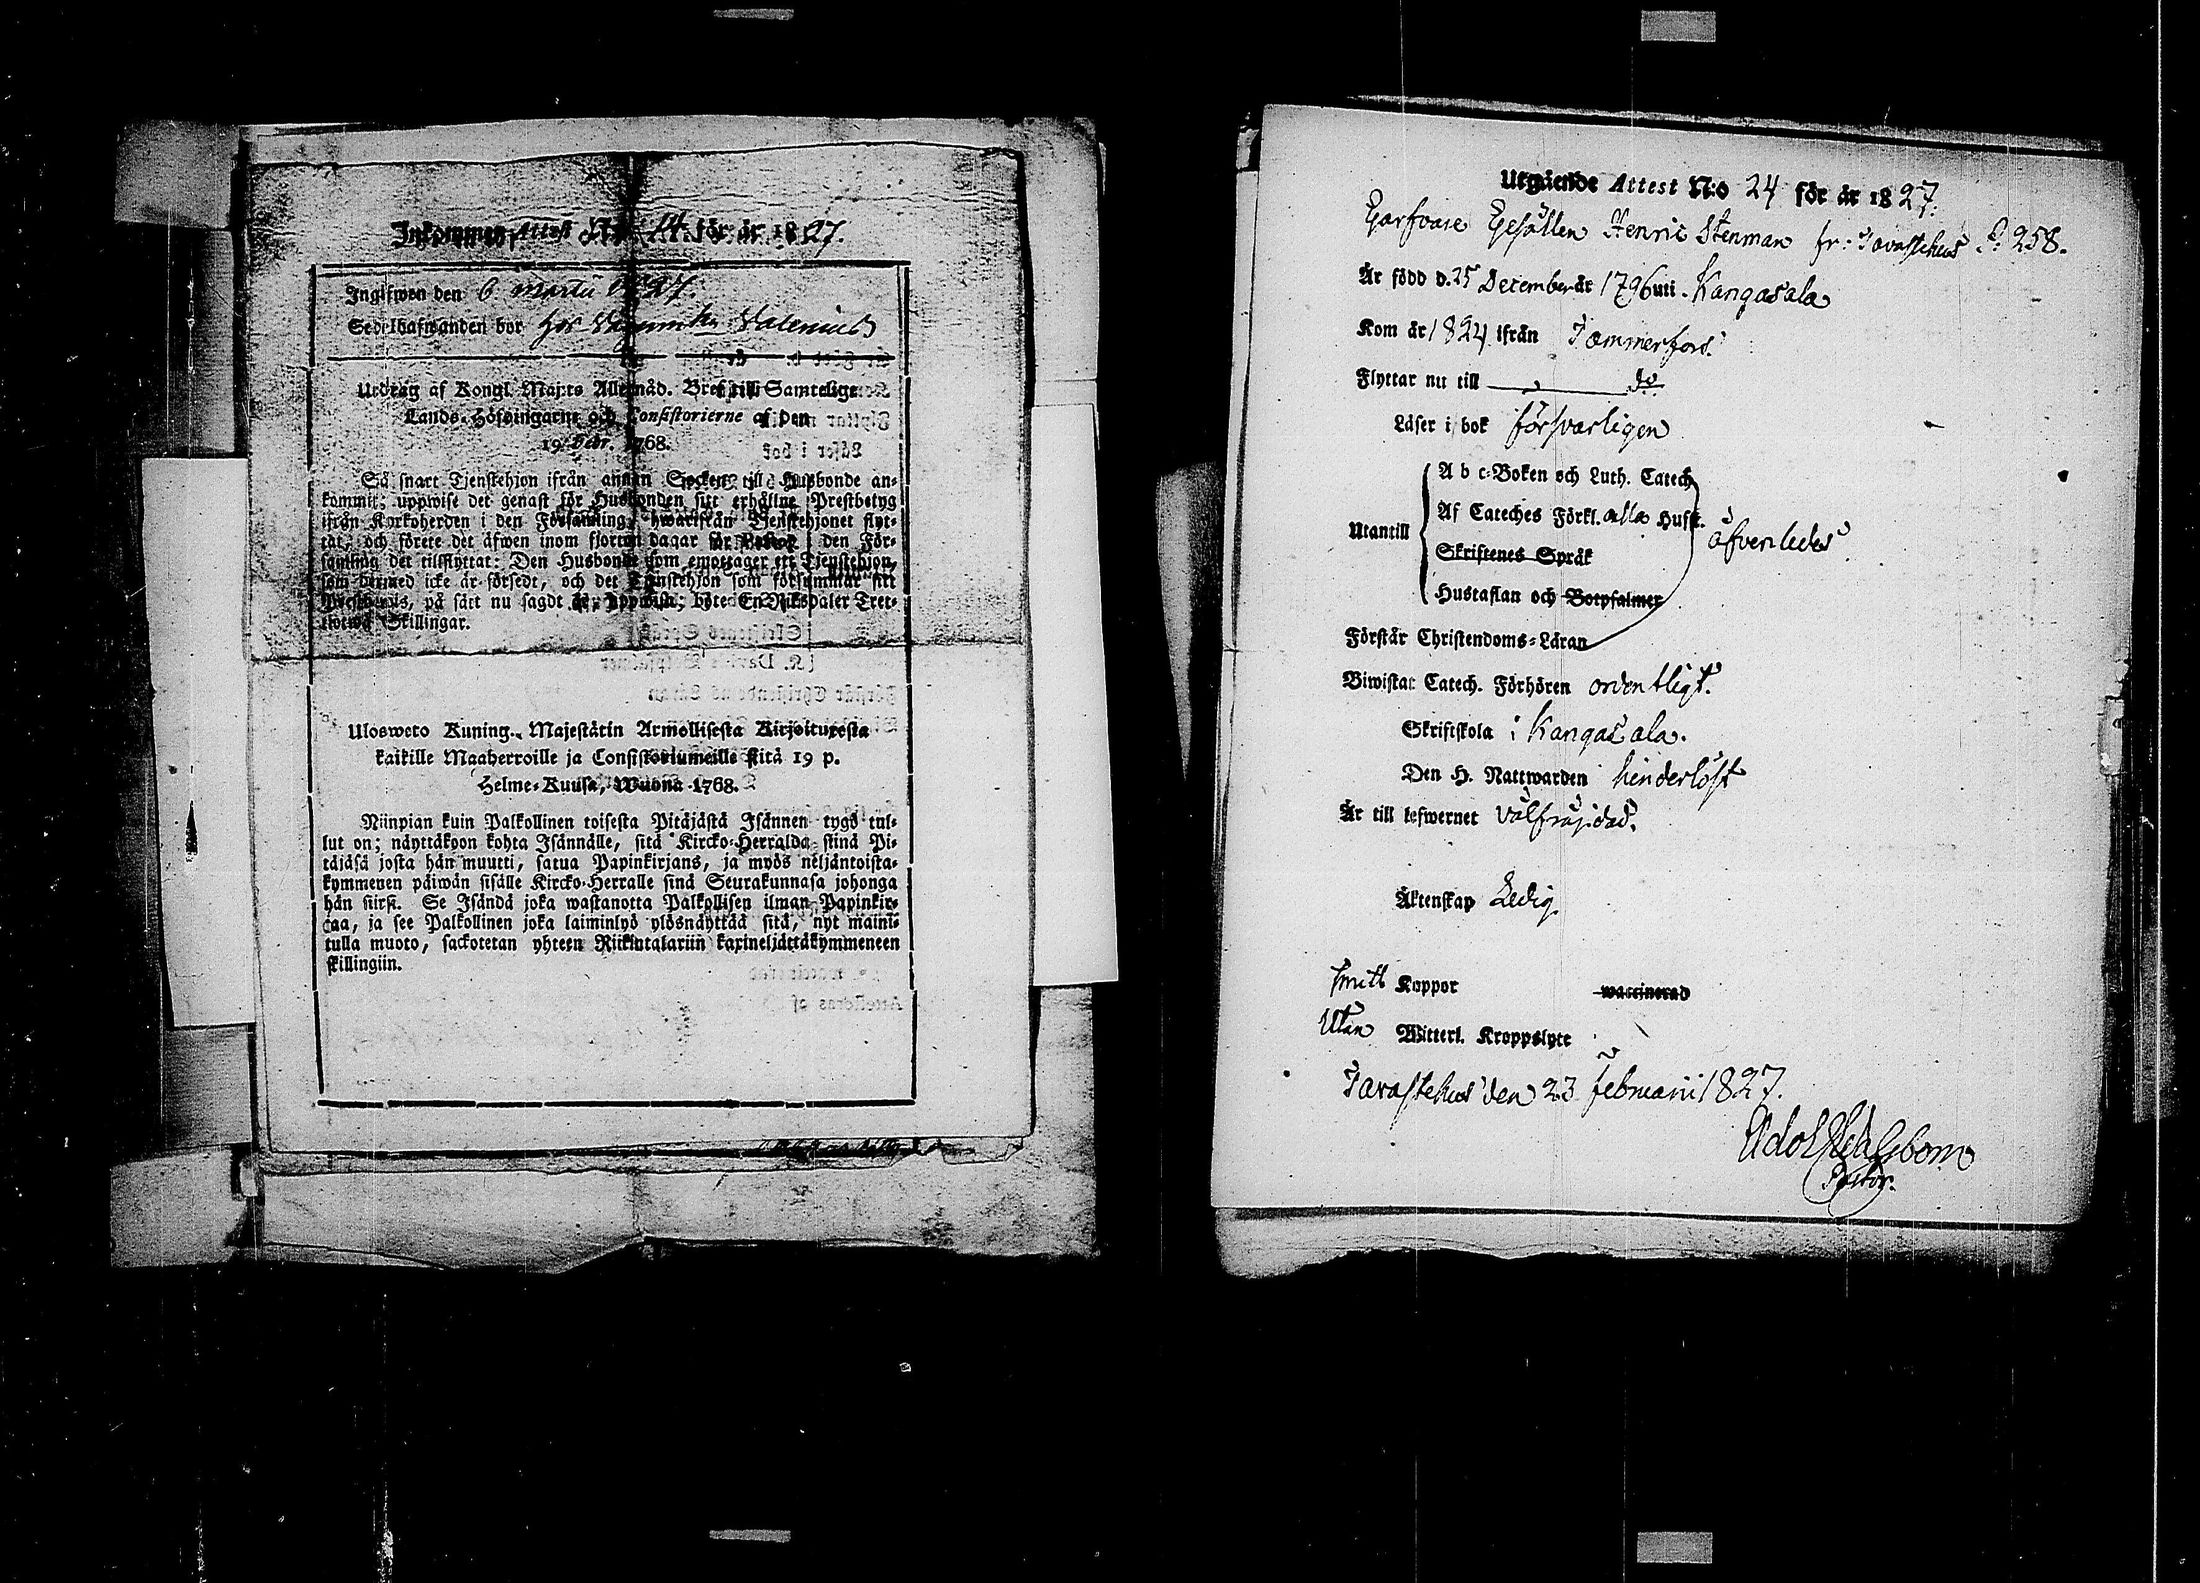 Inkommen Attest N:o 14 för år 1827.
Ingifwen den 6. martii 1827.
Sedelhafwanden bor hos Valenius
Utdrag af Kongl. Maj:ts Allernåd. Bref till Samtelige
Lands-Höfdingarne och Consistorierne af den
19 Febr. 1768.
Så snart Tjenstehjon ifrån annan Socken till Husbonde an-
kommit; uppwise det genast för Husbonden sitt erhållne Prestbetyg
ifrån Kyrkoherden i den Församling, hwarifrån Tjenstehjonet flyt-
tat, och förete det äfwen inom fjorton dagar för Pastor i den För-
samling det tillflyttat: Den Husbonde som emottager ett Tjenstehjon,
som dermed icke är försedt, och det Tjenstehjon som försummar sitt
Prestbetyg, på sätt nu sagdt är, uppwisa; böte En Riksdaler Tret-
tiotwå Skillingar.
Ulosweto Kuning. Majestätin Armollisesta Kirjoituxesta
kaikille Maaherroille ja Consistoriumeille sitä 19 p.
Helme-Kuusa, Wuona 1768.
Niinpian kuin Palkollinen toisesta Pitäjästä Isännen tygö tul-
lut on; näyttäkoon kohta Isännälle, sitä Kircko-Herralda siinä Pi-
täjäsä josta hän muutti, satua Papinkirjans, ja myös neljäntoista-
kymmenen päiwän sisälle Kircko-Herralle siinä Seurakunnasa johonga
hän siirsi. Se Isändä joka wastanotta Palkollisen ilman Papinkir-
jaa, ja see Palkollinen joka laiminlyö ylösnäyttää sitä, nyt maini-
tulla muoto, sackotetan yhteen Riikintalariin kaxineljättäkymmeneen
skillingiin.
Utgående Attest N:o 24 för år 1827.
Garfvare Gesällen Henric Stenman fr: Tavastehus P: 258.
Är född d. 25 December år 1796 uti Kangasala
Kom år 1824 ifrån Tammerfors.
Flyttar nu till do
Läser i bok försvarligen
A b c-Boken och Luth. Catech
Af Cateches Förkl. alla Husf.
Utantill äfvenledes
Skriftenes Språk
Hustaflan och Botpsalmer
Förstår Christendoms-Läran
Biwistat Catech. Förhören ordentligt.
Skriftskola i Kangasala.
Den H. Nattwarden hinderlöst
Är till lefwernet välfräjdad.
Äktenskap Ledig
haft Koppor waccinerad
Utan Witterl. Kroppslyte
Tavastehus den 23 februarii 1827.
Pastor.